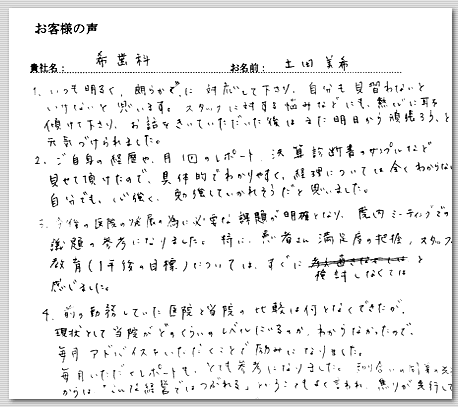 お客様の声
貴社名： 希歯科 お名前： 土田 美希
1. いつも明るく、朗らかに対応して下さり、自分も見習わないと
いけないと思います。スタッフに対する悩みなどにも、熱心に耳を
傾けて下さり、お話をきいていただいた後はまた明日から頑張ろう、と
元気づけられました。
2. ご自身の経歴や、月1回のレポート、決算診断書のサンプルなど
見せて頂けたので、具体的でわかりやすく、経理については全くわからない
自分でも、心強く、勉強していかれそうだと思いました。
3. 今後の医院の発展の為に必要な課題が明確となり、院内ミーティングでの
議題の参考になりました。特に、患者さん満足度の把握、スタッフ
教育(1年後の目標)については、すぐに
検討しなくては と
感じました。
4. 前の勤務していた医院と当院の比較は何となくできたが、
現状として当院がどのくらいのレベルにいるのか、わからなかったので、
毎月アドバイスをいただくことで励みになりました。
毎月いただくレポートも、とても参考になりました。知り合いの
からは "こんな経営ではつぶれる" ということもよく言われ、焦りが先行して